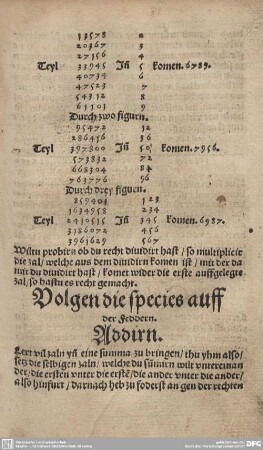 13578 2
20367 3
27156 4
Teyl 33945 Jn̄ 5 komen. 6789.
40734 6
47523 7
54312 8
61101 9
Durch zwo figurn.
95472 12
286416 36
Teyl 397800 Jn̄ 50 komen. 7956.
573832 72
668304 84
763776 96
Durch drey figurn.
859401 123
1634958 234
Teyl 2410515 Jn̄ 345 komen. 6987.
3186072 456
3961629 567
Wiltu probirn ob du recht diuidirt hast / so multiplicir
die zal / welche aus dem diuidirn komen ist / mit der da
mit du diuidirt hast / komet wider die erste auffgelegte
zal / so hastu es recht gemacht.
Volgen die species auff
der Feddern.
Addirn.
Lert vil zaln yn̄ eine summa zu bringen / thu yhm also /
setz die selbigen zaln / welche du sūmirn wilt vntereinan
der / die ersten vnter die erstē / die ander vnter die ander /
also hinfurt / darnach heb zu foderst an gen der rechten